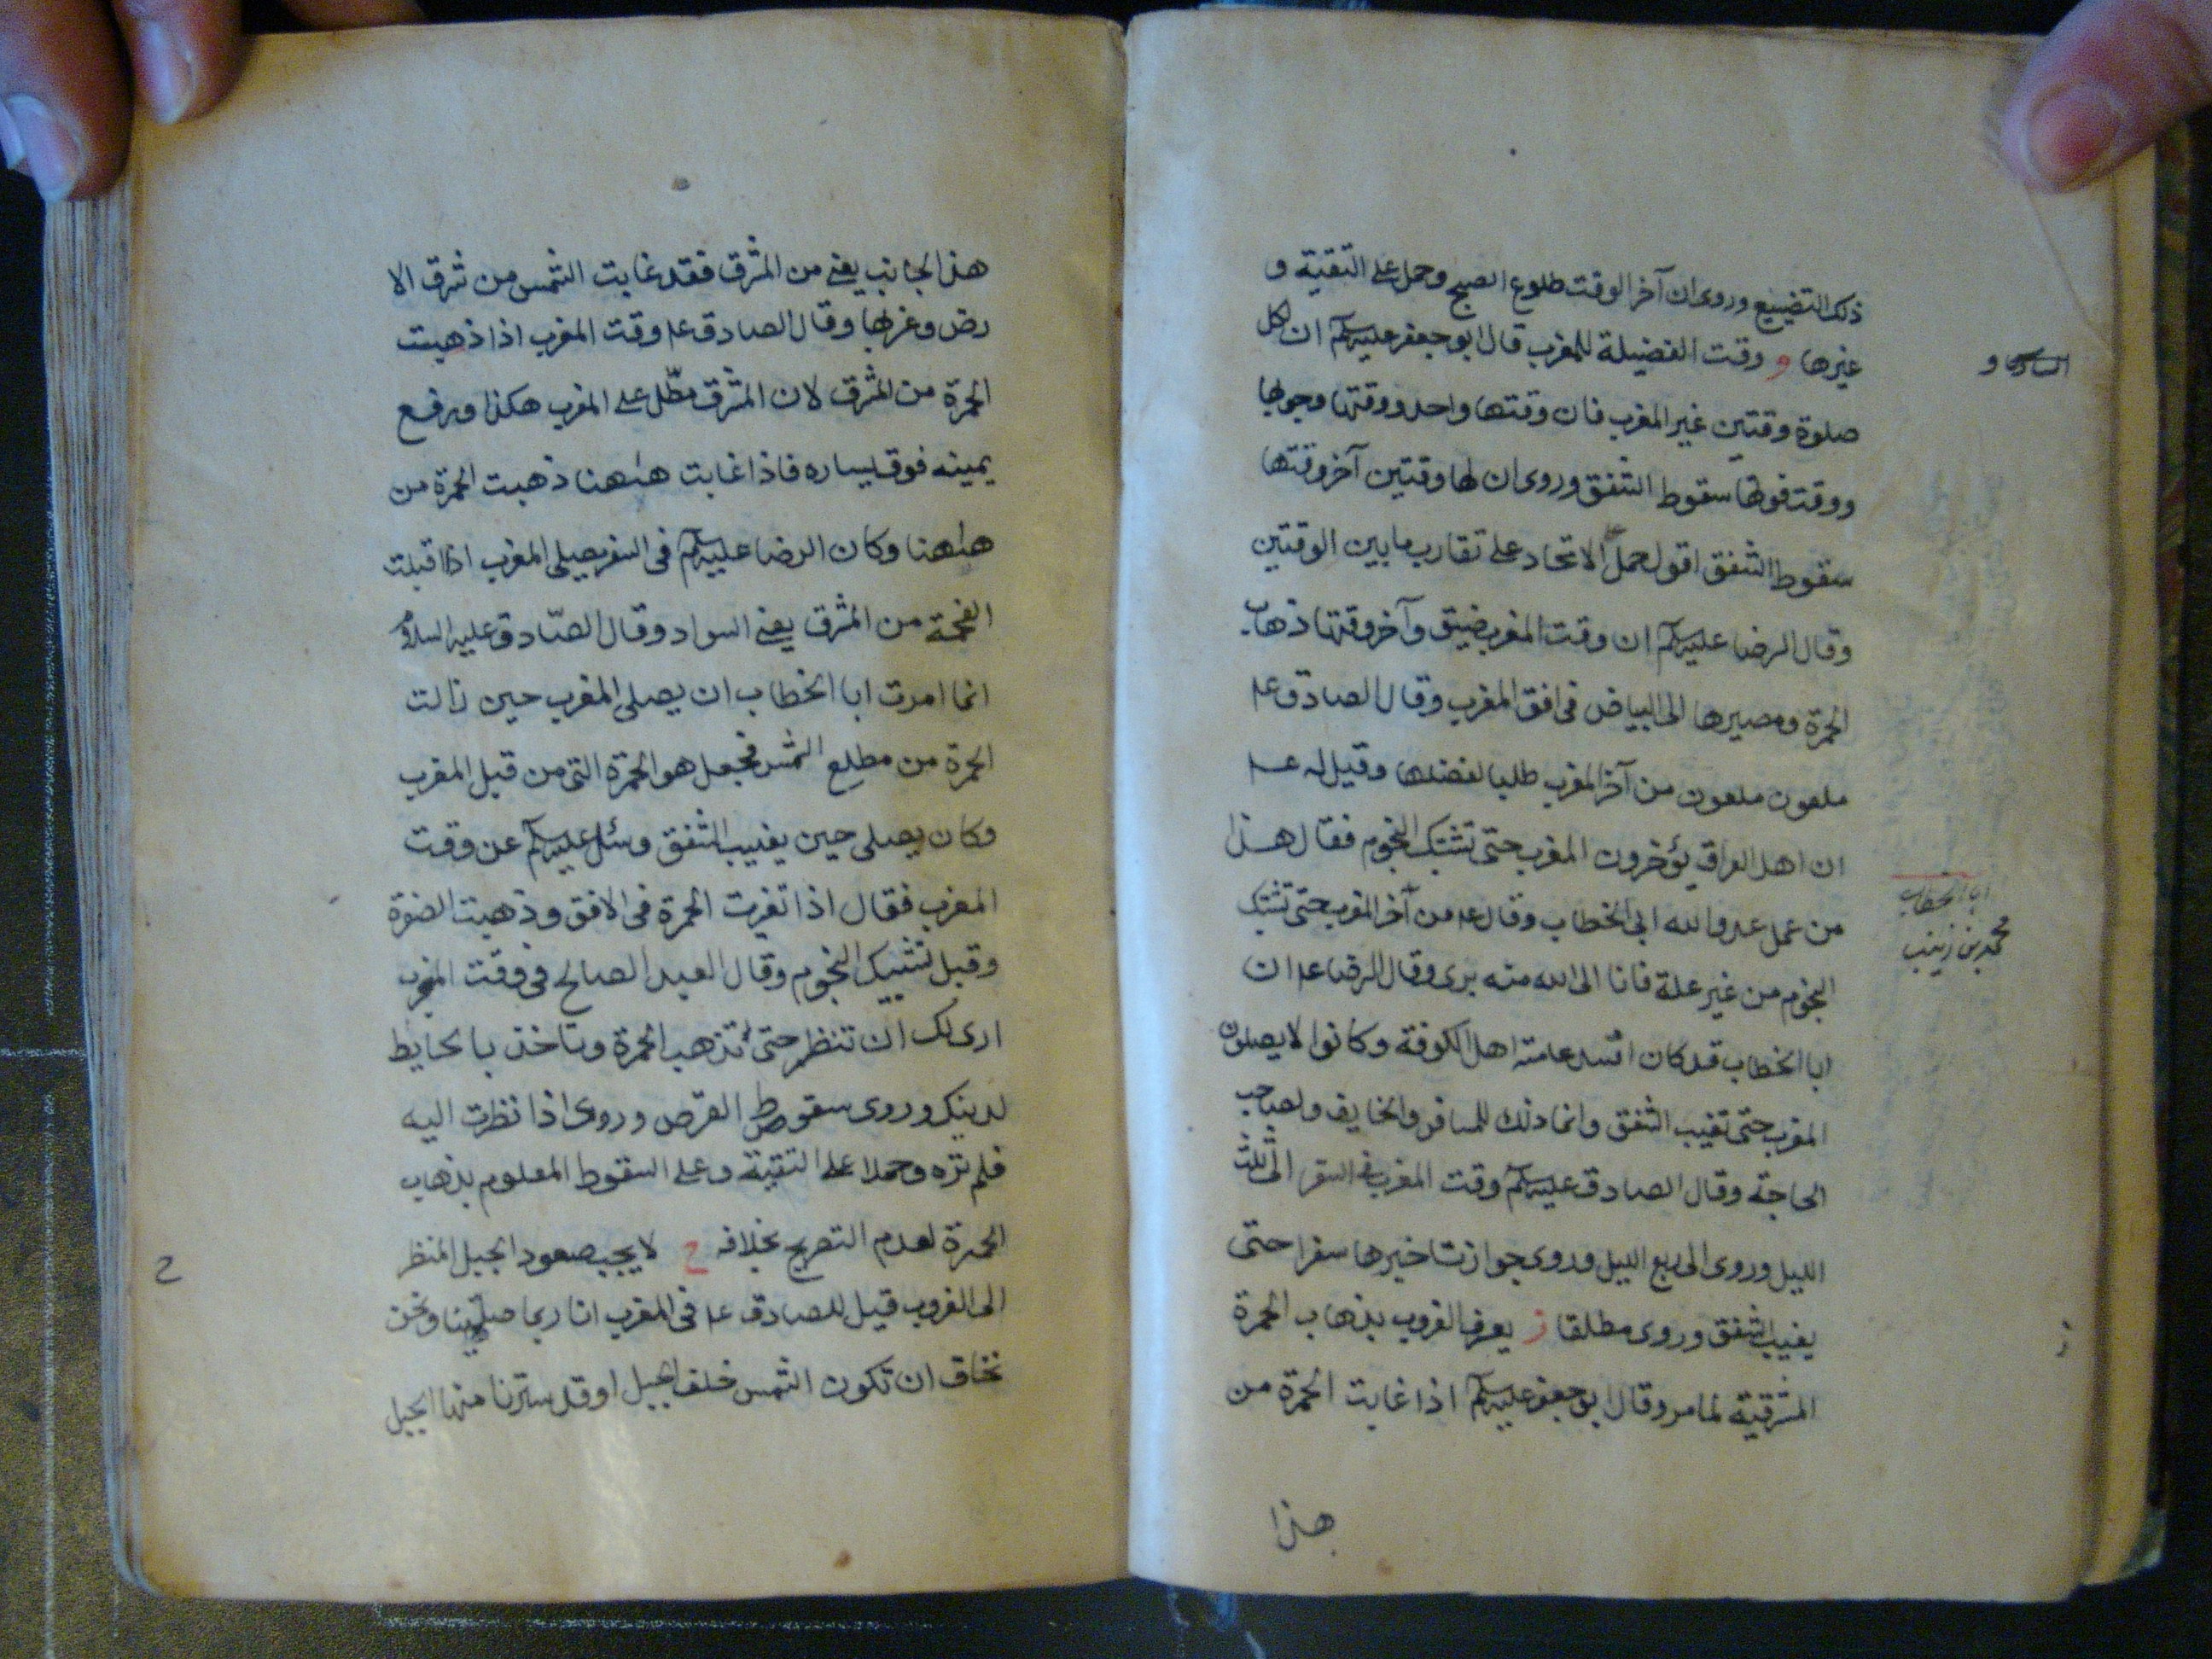 ذلك التضييع وروى ان آخر الوقت طلوع الصبح وحمل على التقية و
غيرها و وقت الفضيلة للمغرب قال ابو جعفر عليه السلم ان لكل
صلوة وقتين غير المغرب فان وقتها واحد ووقتها وجوبها
ووقت فوتها سقوط الشفق وروى ان لها وقتين آخر وقتها
سقوط الشفق اقول حمل الاتحاد على تقارب ما بين الوقتين
وقال الرضا عليه السلم ان وقت المغرب ضيق وآخر وقتها ذهاب
الحمرة ومصيرها الى البياض فى افق المغرب وقال الصادق عا
ملعون ملعون من آخر المغرب طلبا لفضلها وقيل له عا
ان اهل العراق يؤخرون المغرب حتى تشتبك النجوم فقال هذا
من عمل عدو الله ابى الخطاب وقال عا من آخر المغرب حتى تشتبك
النجوم من غير علة فانا الى الله منه برى وقال الرضا عا ان
ابا الخطاب قد كان افسد عامة اهل الكوفة وكانوا لا يصلون
المغرب حتى تغيب الشفق وانما ذلك للمسافر والخايف ولصاحب
الحاجة وقال الصادق عليه السلم وقت المغرب فى السفر الى ثلث
الليل وروى الى ربع الليل وروى جواز تاخيرها سفرا حتى
يغيب الشفق وروى مطلقا ز يعرف الغروب بذهاب الحمرة
المشرقية لما مر وقال ابو جعفر عليه السلم اذا غابت الحمرة من
هذا
و
ابا الخطاب
محمد بن زينب
ز
هذا الجانب يعنى من المشرق فقد غابت الشمس من شرق الا
رض وغربها وقال الصادق عا وقت المغرب اذا ذهبت
الحمرة من المشرق لان المشرق مطّل على المغرب هكذا ورفع
يمينه فوق يساره فاذا غابت هٰهنا ذهبت الحمرة من
هٰهنا وكان الرضا عليه السلم فى السفر يصلى المغرب اذا اقبلت
الفحمة من المشرق يعنى السواد وقال الصّادق عليه السلام
انما امرت ابا الخطاب ان يصلى المغرب حين زالت
الحمرة من مطلع الشمس فجعل هو الحمرة التى من قبل المغرب
وكان يصلى حين يغيب الشفق وسئل عليه السلم عن وقت
المغرب فقال اذا تغيرت الحمرة فى الافق وذهبت الصفرة
وقبل تشتبك النجوم وقال العبد الصالح فى وقت المغرب
ارى لك ان تنظر حتى تذهب الحمرة وتاخذ بالحايط
لدينك وروى سقوط القرص وروى اذا نظرت اليه
فلم تره وحملا على التقية وعلى السقوط المعلوم بذهاب
الحمرة لعدم التصريح بخلافه ح لا يجب صعود الجبل المنظر
الى الغروب قيل للصادق عا فى المغرب انا ربما صلينا ونحن
نخاف ان تكون الشمس خلف الجبل او قد سترنا منها الجبل
ح